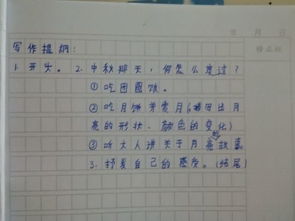 月 日
写作提纲:
1. 开头。2. 中秋那天,你怎么度过?
①吃团圆饭。
②吃月饼赏月(写出月
亮的形状、颜色的变化)
③听大人讲关于月亮的故事
3. 抒发自己的感受。(结尾)